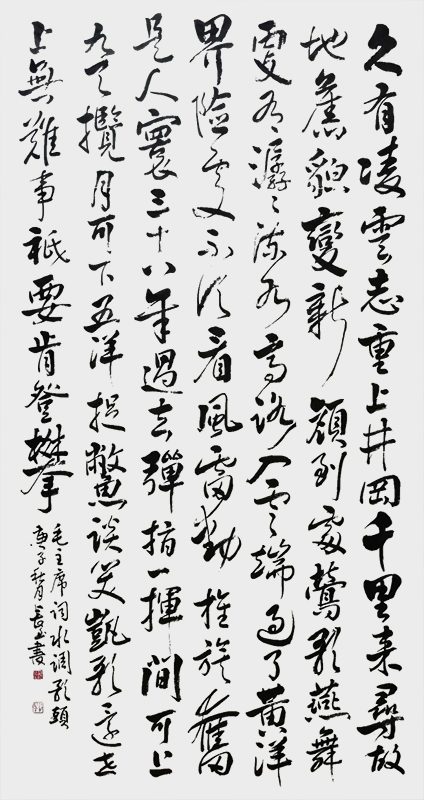 久有凌雲志重上井岡千里来尋故
地舊貌變新顏到處鶯歌燕舞
更有潺々流水高路入雲端過了黄洋
界險處不須看風雷動旌旗奮
是人寰三十八年過去彈指一揮間可上
九天攬月可下五洋捉鱉談笑凱歌還世
上無難事祇要肯登攀
毛主席詞水調歌頭
庚子秋月長書